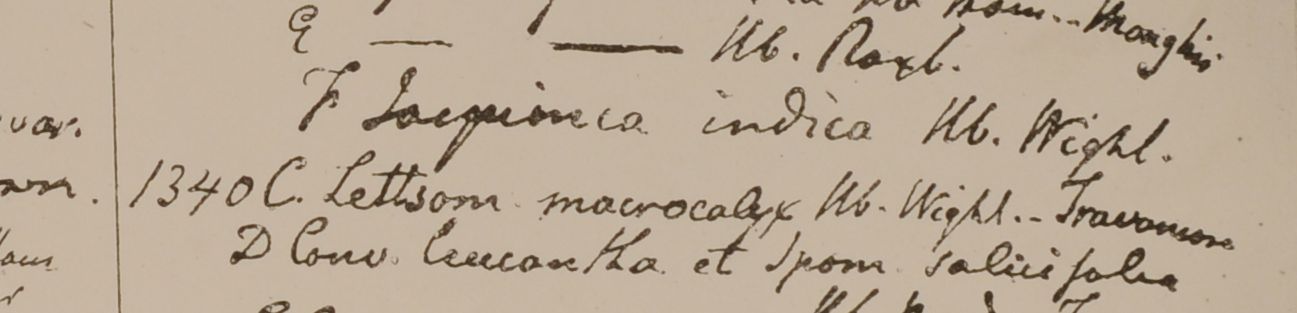 Hb. Rom. -- Monghir
E — — Hb. Roxb.
F Jacquinia indica Hb. Wight.
var.
1340 C. Lettsom macrocalyx Hb. Wight. -- Travancore
D Conv. leucantha et Ipom salicifolia